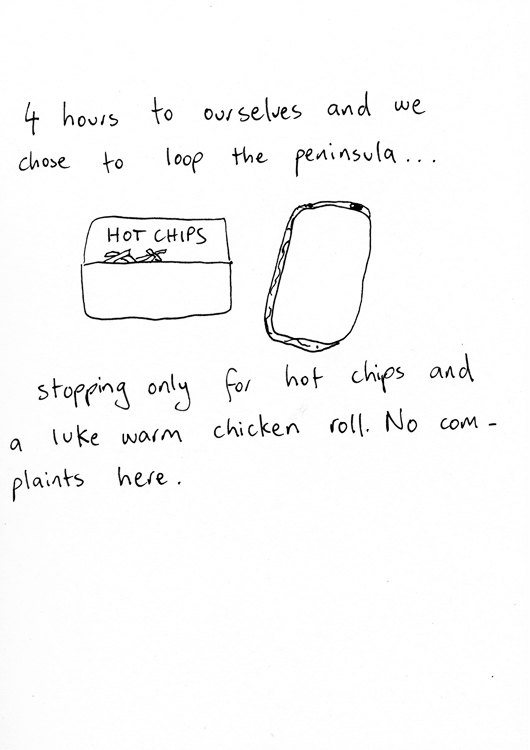 4 hours to ourselves and we
chose to loop the peninsula...
HOT CHIPS
stopping only for hot chips and
a luke warm chicken roll. No com-
plaints here.